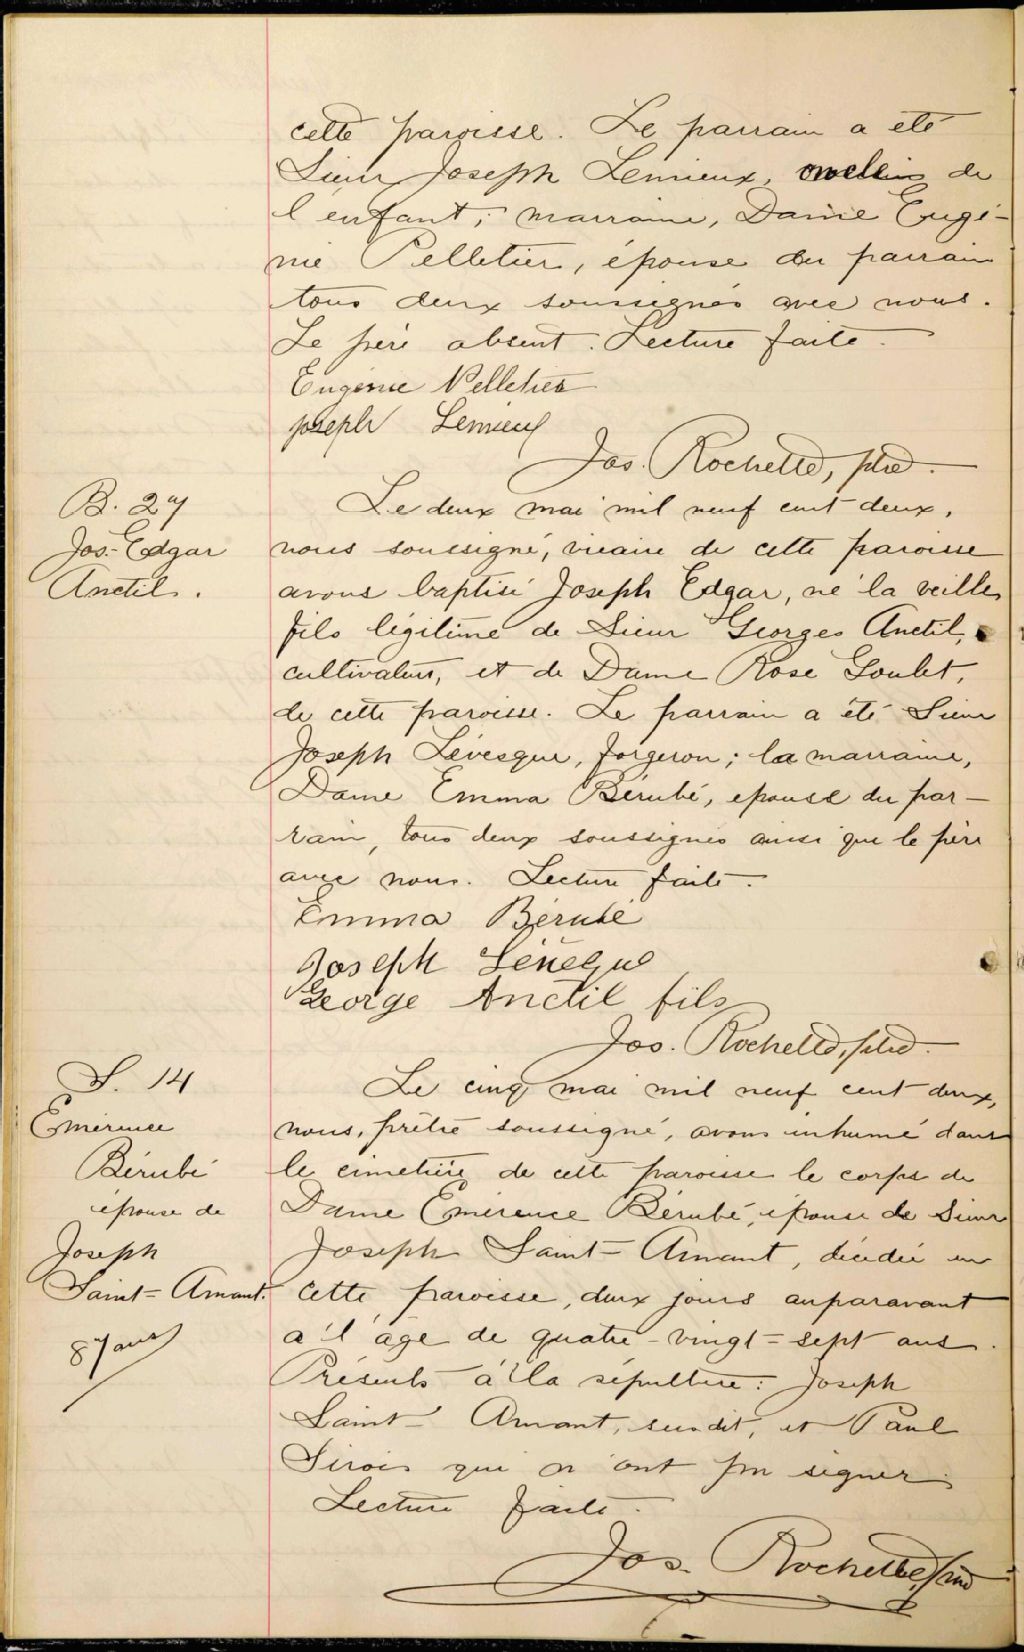 cette paroisse. Le parrain a été
Sieur Joseph Lemieux, de
l'enfant; marraine, Dame Eugé-
nie Pelletier, épouse du parrain
tous deux soussignés avec nous.
Le père absent. Lecture faite.
Eugénie Pelletier
Joseph Lemieux
Jos. Rochette, ptre.
B. 27
Jos.-Edgar
Anctil.
Le deux mai mil neuf cent deux,
nous soussigné, vicaire de cette paroisse
avons baptisé Joseph Edgar, né la veille,
fils légitime de Sieur Georges Anctil,
cultivateur, et de Dame Rose Goulet,
de cette paroisse. Le parrain a été Sieur
Joseph Lévesque, forgeron; la marraine,
Dame Emma Bérubé, epouse du par-
rain, tous deux soussignés ainsi que le père
avec nous. Lecture faite.
Emma Bérubé
Joseph Léveque
George Anctil fils
Jos. Rochette, ptre.
S. 14
Emérence
Bérubé
épouse de
Joseph
Saint-Amant.
87 ans
Le cinq mai mil neuf cent deux,
nous, prêtre soussigné, avons inhumé dans
le cimetière de cette paroisse le corps de
Dame Emérence Bérubé, épouse de Sieur
Joseph Saint-Amant, décédée en
cette paroisse, deux jours auparavant
à l'âge de quatre-vingt-sept ans.
Présents à la sépulture: Joseph
Saint-Amant, susdit, et Paul
Sirois qui n'ont pu signer.
Lecture faite.
Jos. Rochette, ptre